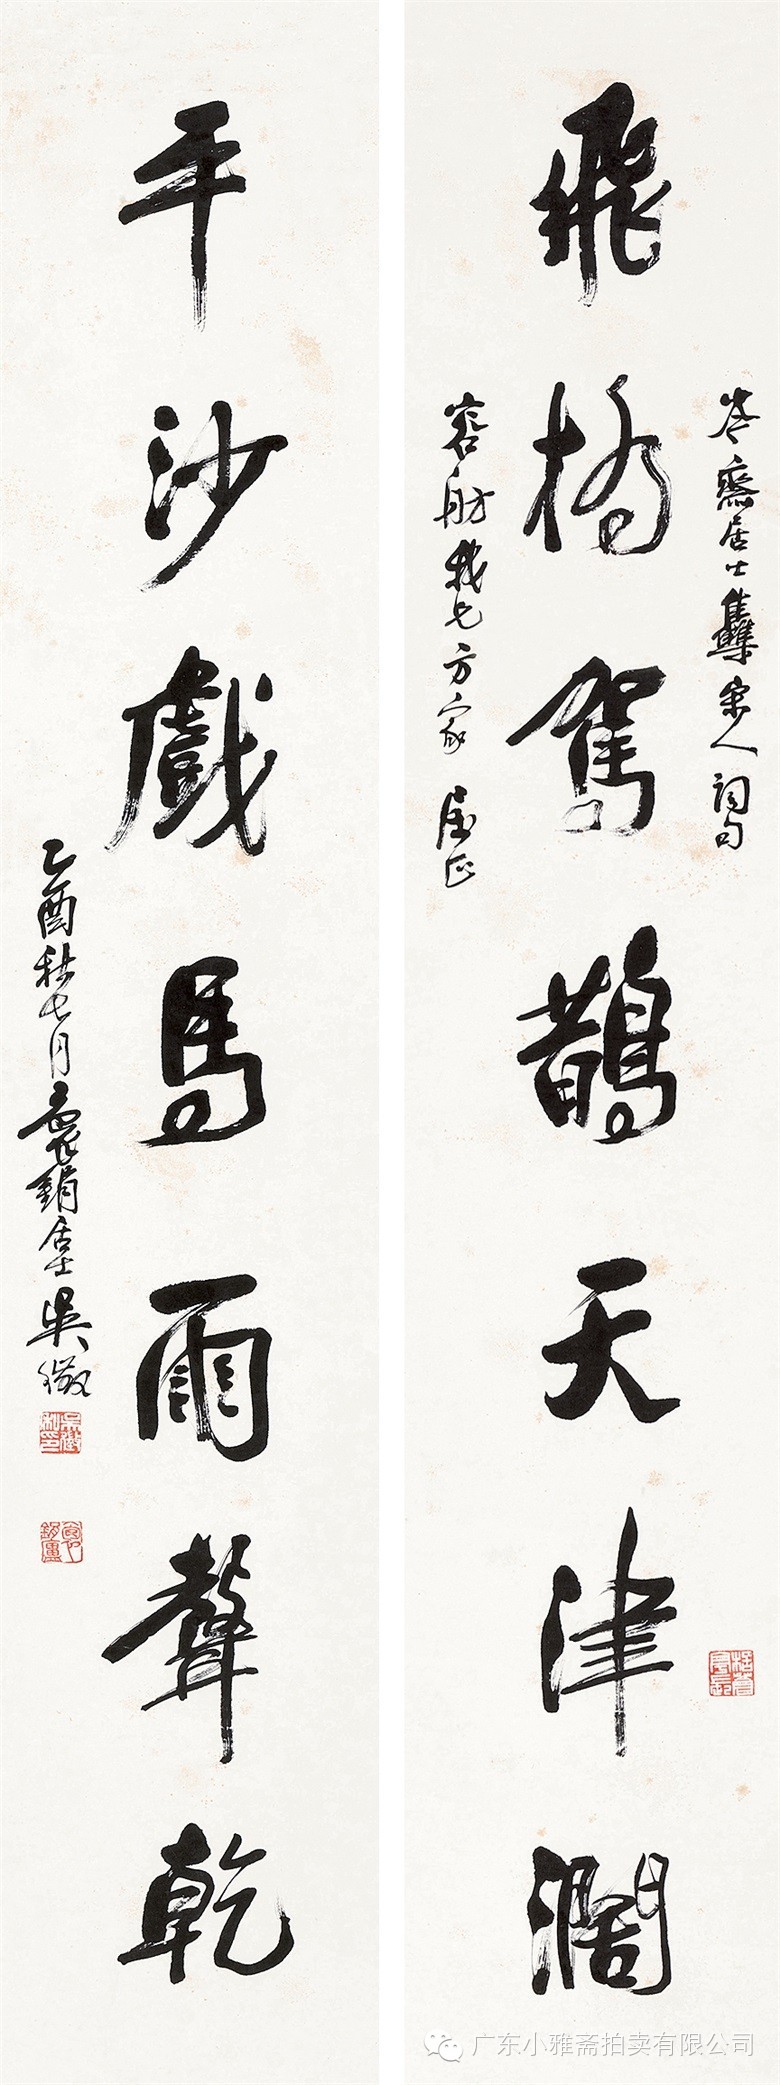 飛橋駕鵲天津闊
岑齋居士集宋人詞句
容舫我兄方家 屬正
平沙戲馬雨聲乾
乙酉秋七月袌鋗居士吳徵
吳徵私印
广东小雅斋拍卖有限公司